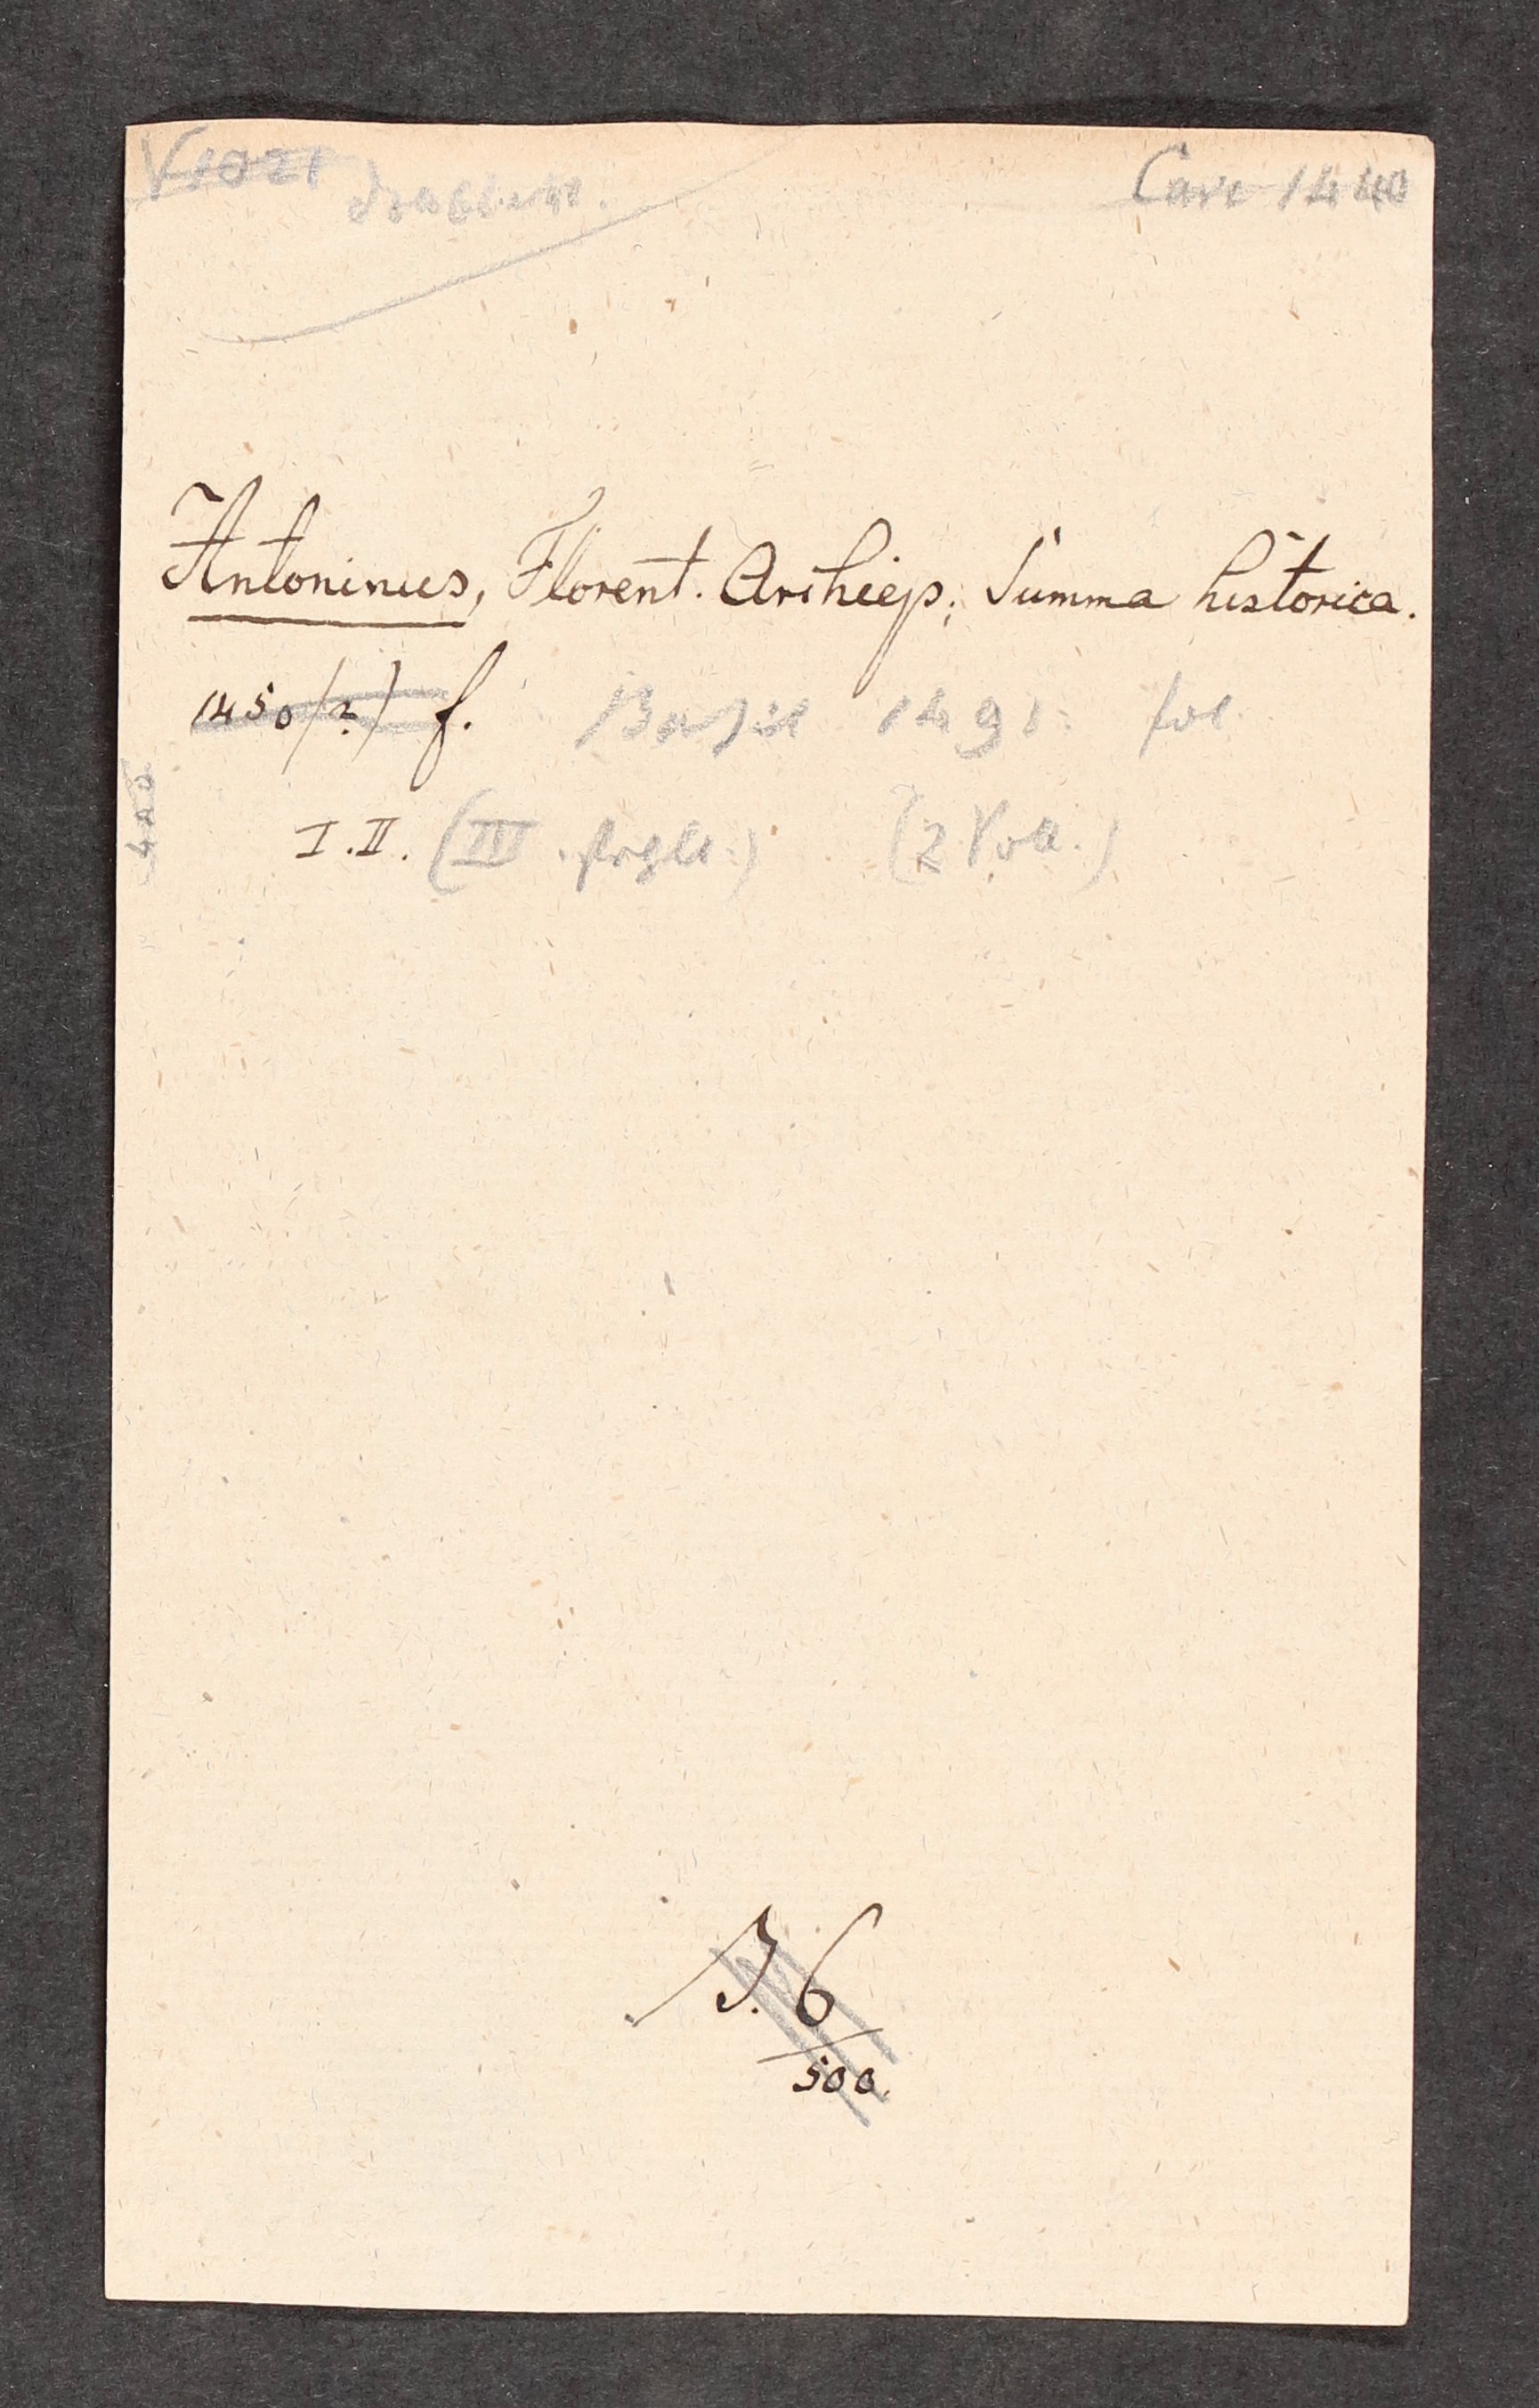 V 1021
Care 1440
Antoninus, Florent. Archiep; Summa historica.
1450 (?) f. Basil 1491. fol
I.II. (III. fehlt.) (2 Voll.)
J. 6
500.